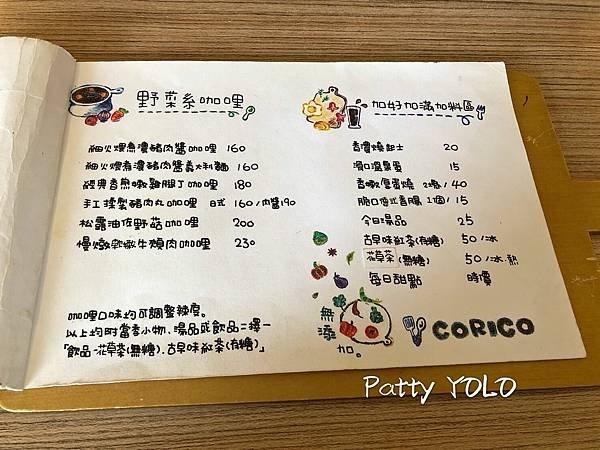 野菜系咖哩
細火煨煮濃豬肉醬咖哩 160
細火煨煮濃豬肉醬義大利麵 160
經典香煎嫩雞腿丁咖哩 180
手工揉製豬肉丸咖哩 日式 160/肉醬190
松露油佐野菇咖哩 200
慢燉軟嫩牛燒肉咖哩 230
咖哩口味均可調整辣度。
以上均附當季小物、湯品或飲品二擇一
「飲品-花草茶(無糖).古早味紅茶(有糖)」
加好加滿加料區
香濃燒起士 20
滑口溫泉蛋 15
香嫩厚蛋燒 2塊/40
脆口德式香腸 1個/15
今日湯品 25
古早味紅茶(有糖) 50/冰
花草茶(無糖) 50/冰.熱
每日甜點 時價
無添加。
CORICO
Patty YOLO